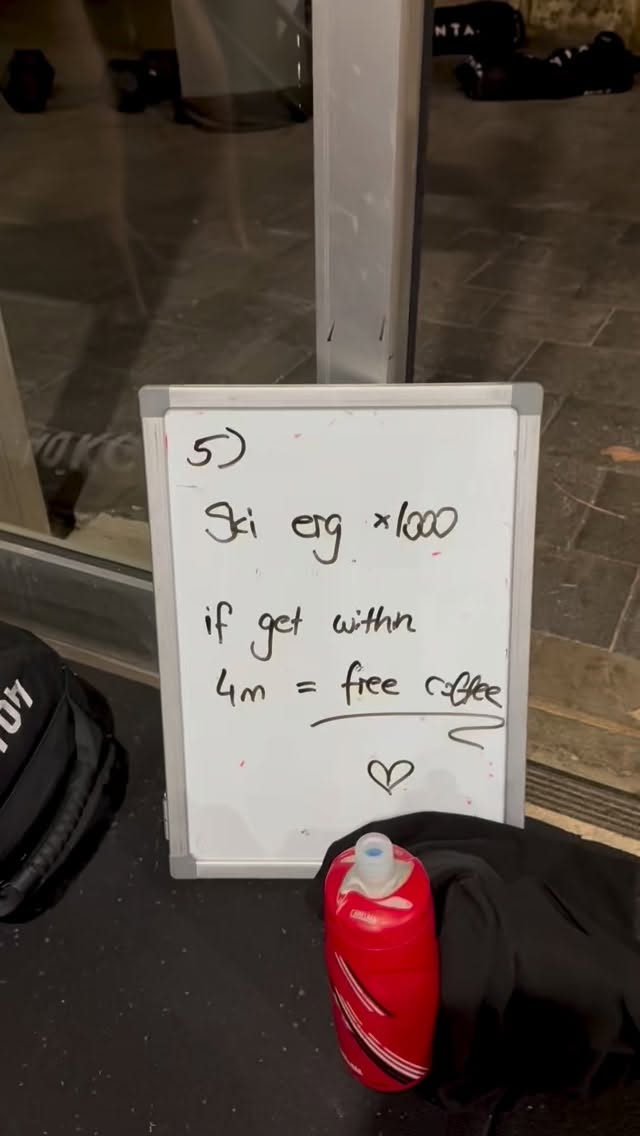 NTA.
5)
Ski erg ×1000
if get within
4m = free coffee
♡
CAMELBAK